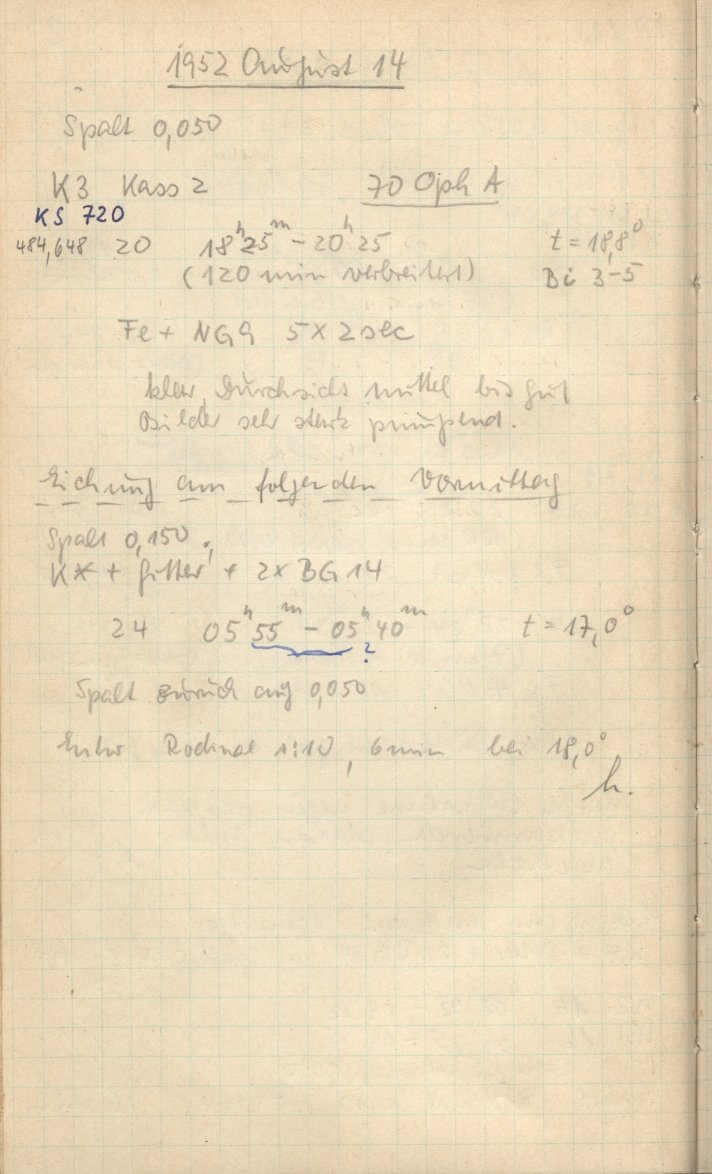 1952 August 14
Spalt 0,050
K3 Kass 2 70 Oph A
KS 720
484,648 20 18ʰ25ᵐ – 20ʰ25 t = 18,8°
(120 min verbreitert) Bi 3–5
Fe + NG9 5 x 2 sec
klar, Durchsicht mittel bis gut
Bilder sehr stark pumpend.
Eichung am folgenden Vormittag
Spalt 0,150
K* + Gitter + 2x BG 14
24 05ʰ55ᵐ – 05ʰ40ᵐ t = 17,0°
?
Spalt zurück auf 0,050
Entw Rodinal 1:10, 6 min bei 18,0°